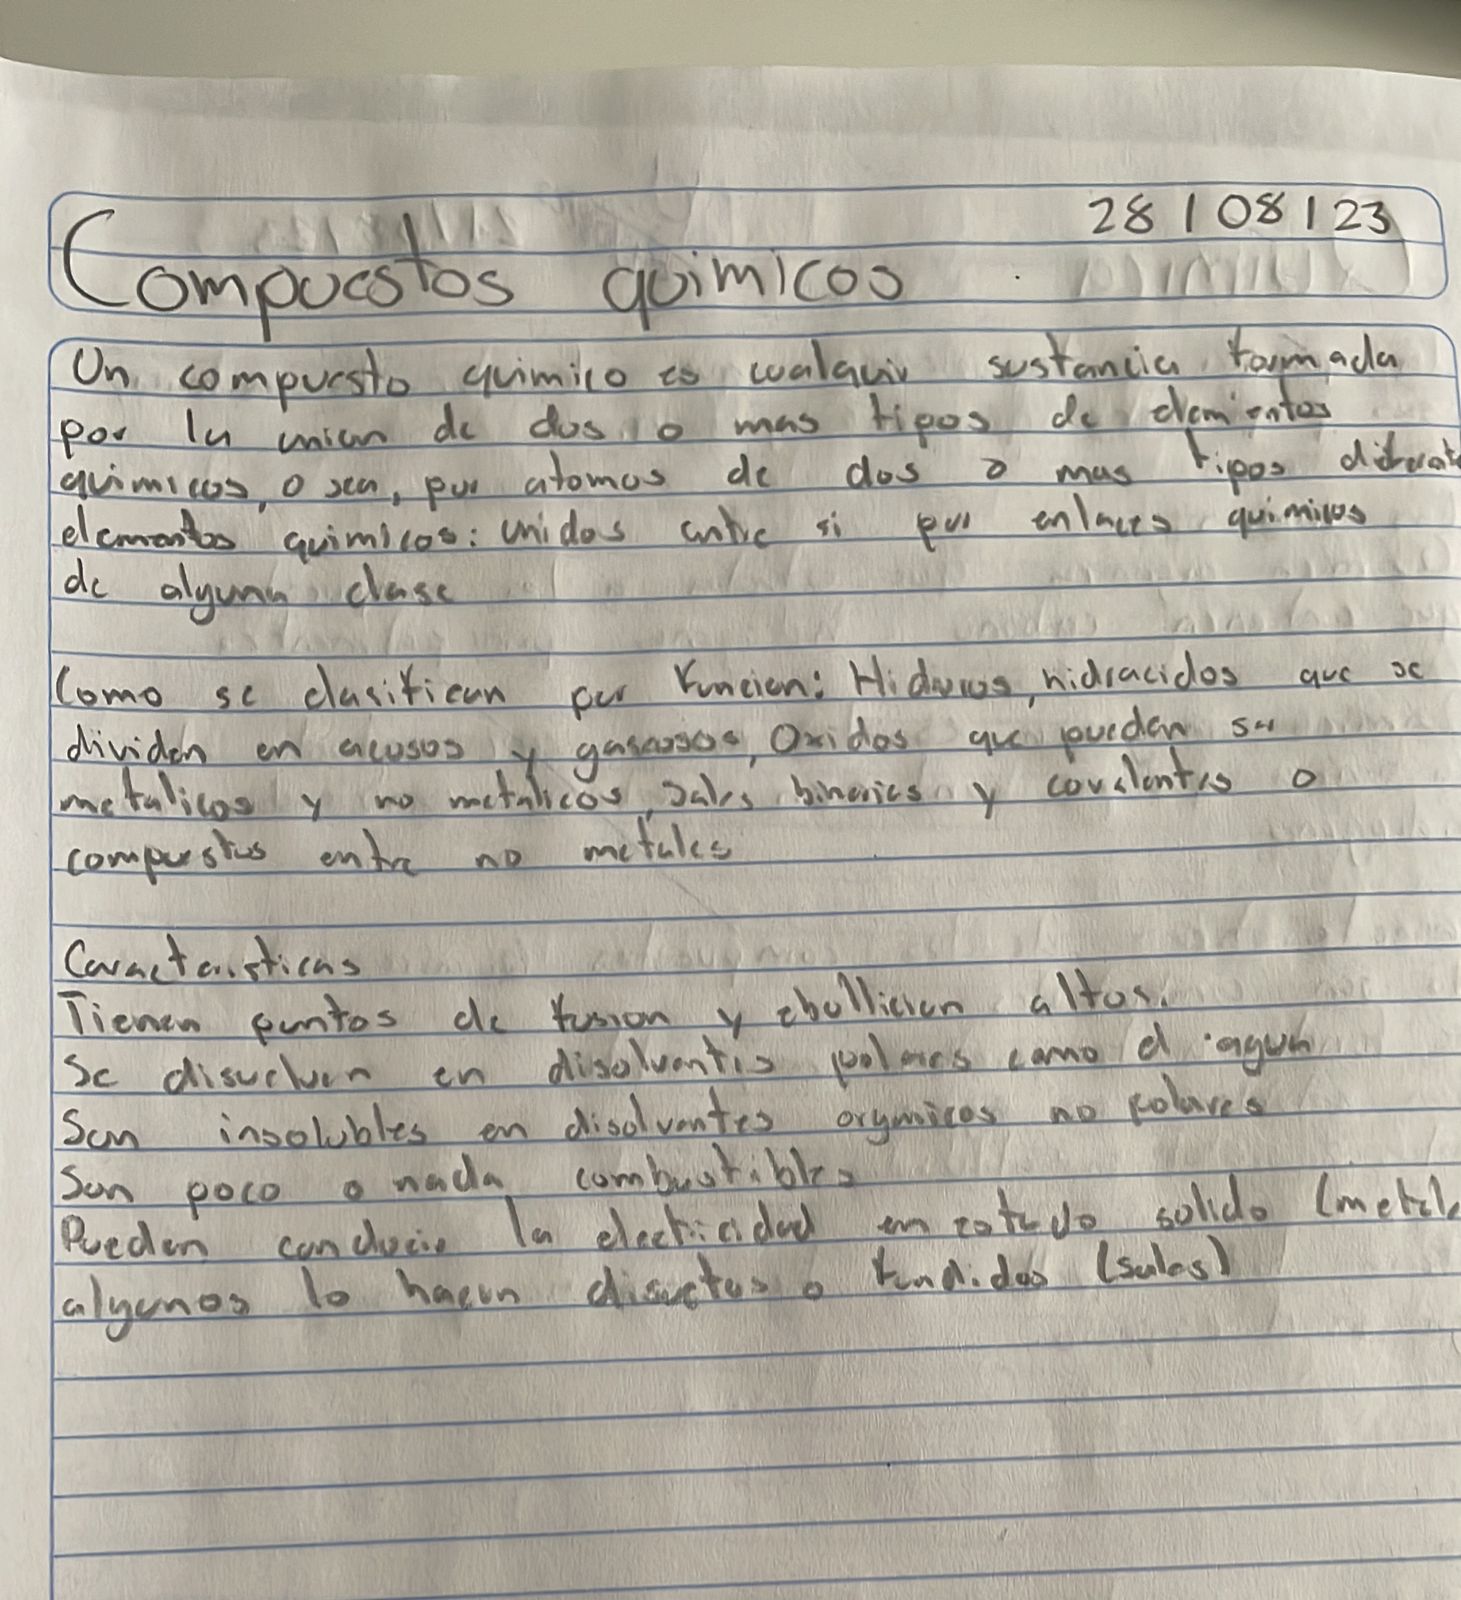 28/08/23
Compuestos quimicos
Un compuesto quimico es cualquier sustancia formada
por la union de dos o mas tipos de elementos
quimicos, o sea, por atomos de dos o mas tipos
elementos quimicos: unidos entre si por enlaces quimicos
de alguna clase
Como se clasifican por funcion: Hidruros, hidracidos que se
dividen en acuosos y gaseosos, Oxidos que pueden ser
metalicos y no metalicos, sales binarias y covalentes o
compuestos entre no metales
Caracteristicas
Tienen puntos de fusion y ebullicion altos.
Se disuelven en disolventes polares como el agua
Son insolubles en disolventes organicos no polares
Son poco o nada combustibles
Pueden conducir la electricidad en estado solido
algunos lo hacen disueltos o fundidos (sales)